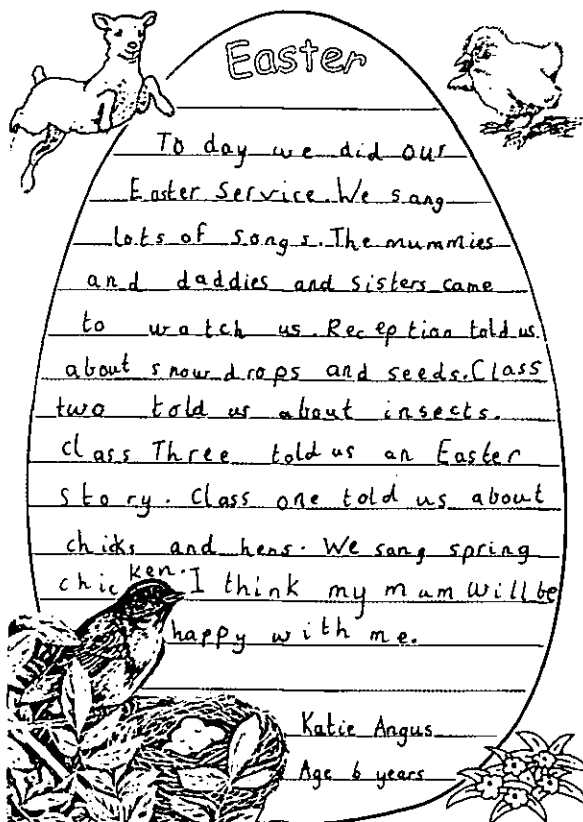 Easter
To day we did our
Easter Service. We sang
lots of songs. The mummies
and daddies and sisters came
to watch us. Reception told us
about snow drops and seeds. Class
two told us about insects.
Class Three told us an Easter
Story. Class one told us about
chicks and hens. We sang spring
chicken. I think my mum will be
happy with me.
Katie Angus
Age 6 years